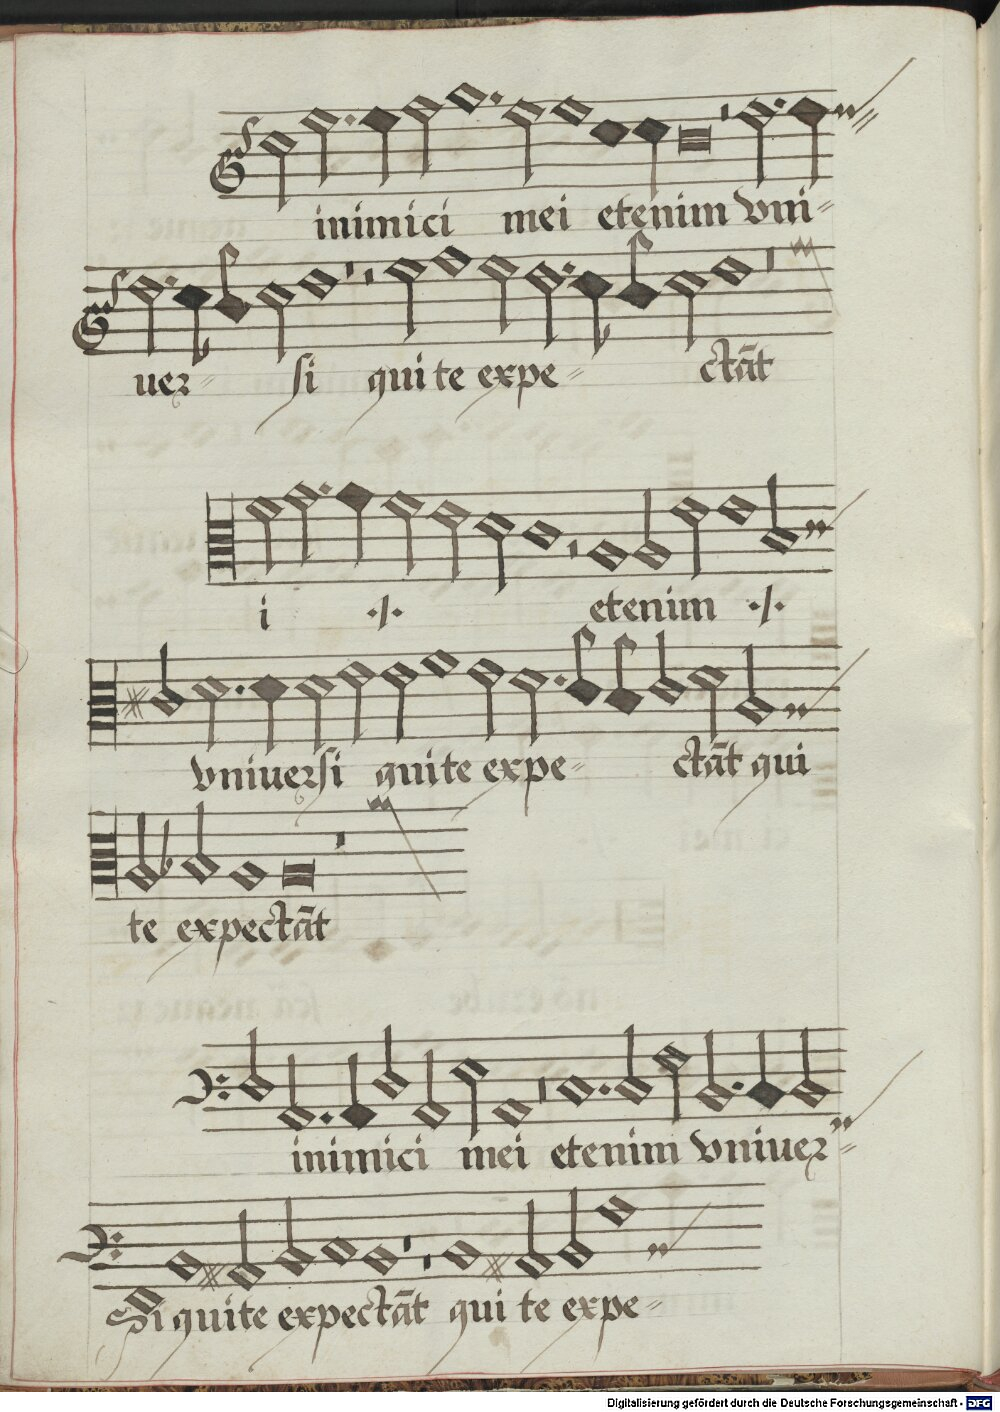 inimici mei etenim vni-
uer- si qui te expe- ctāt
i ·/· etenim ·/·
vniuersi qui te expe- ctāt qui
te expectāt
inimici mei etenim vniuer-
Si qui te expectāt qui te expe-
Digitalisierung gefördert durch die Deutsche Forschungsgemeinschaft - DFG